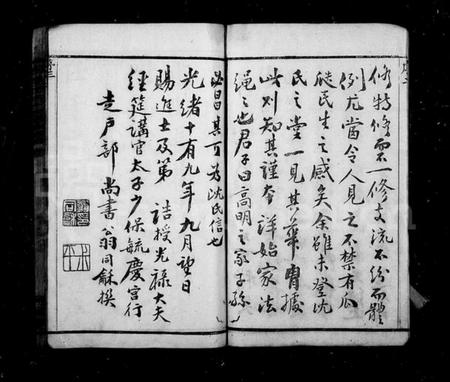 修特修而不一修支流不紛而體
例尤當令人見之不禁有瓜
瓞民生之感矣余雖未登沈
民之堂一見其華胄據
此則知其謹本詳始家法
繩之也君子曰高明之家子孫
必昌其可為沈氏信也
光緒十有九年九月望日
賜進士及第 誥授光祿大夫
經筵講官太子少保毓慶宮行
走戶部尚書翁同龢撰